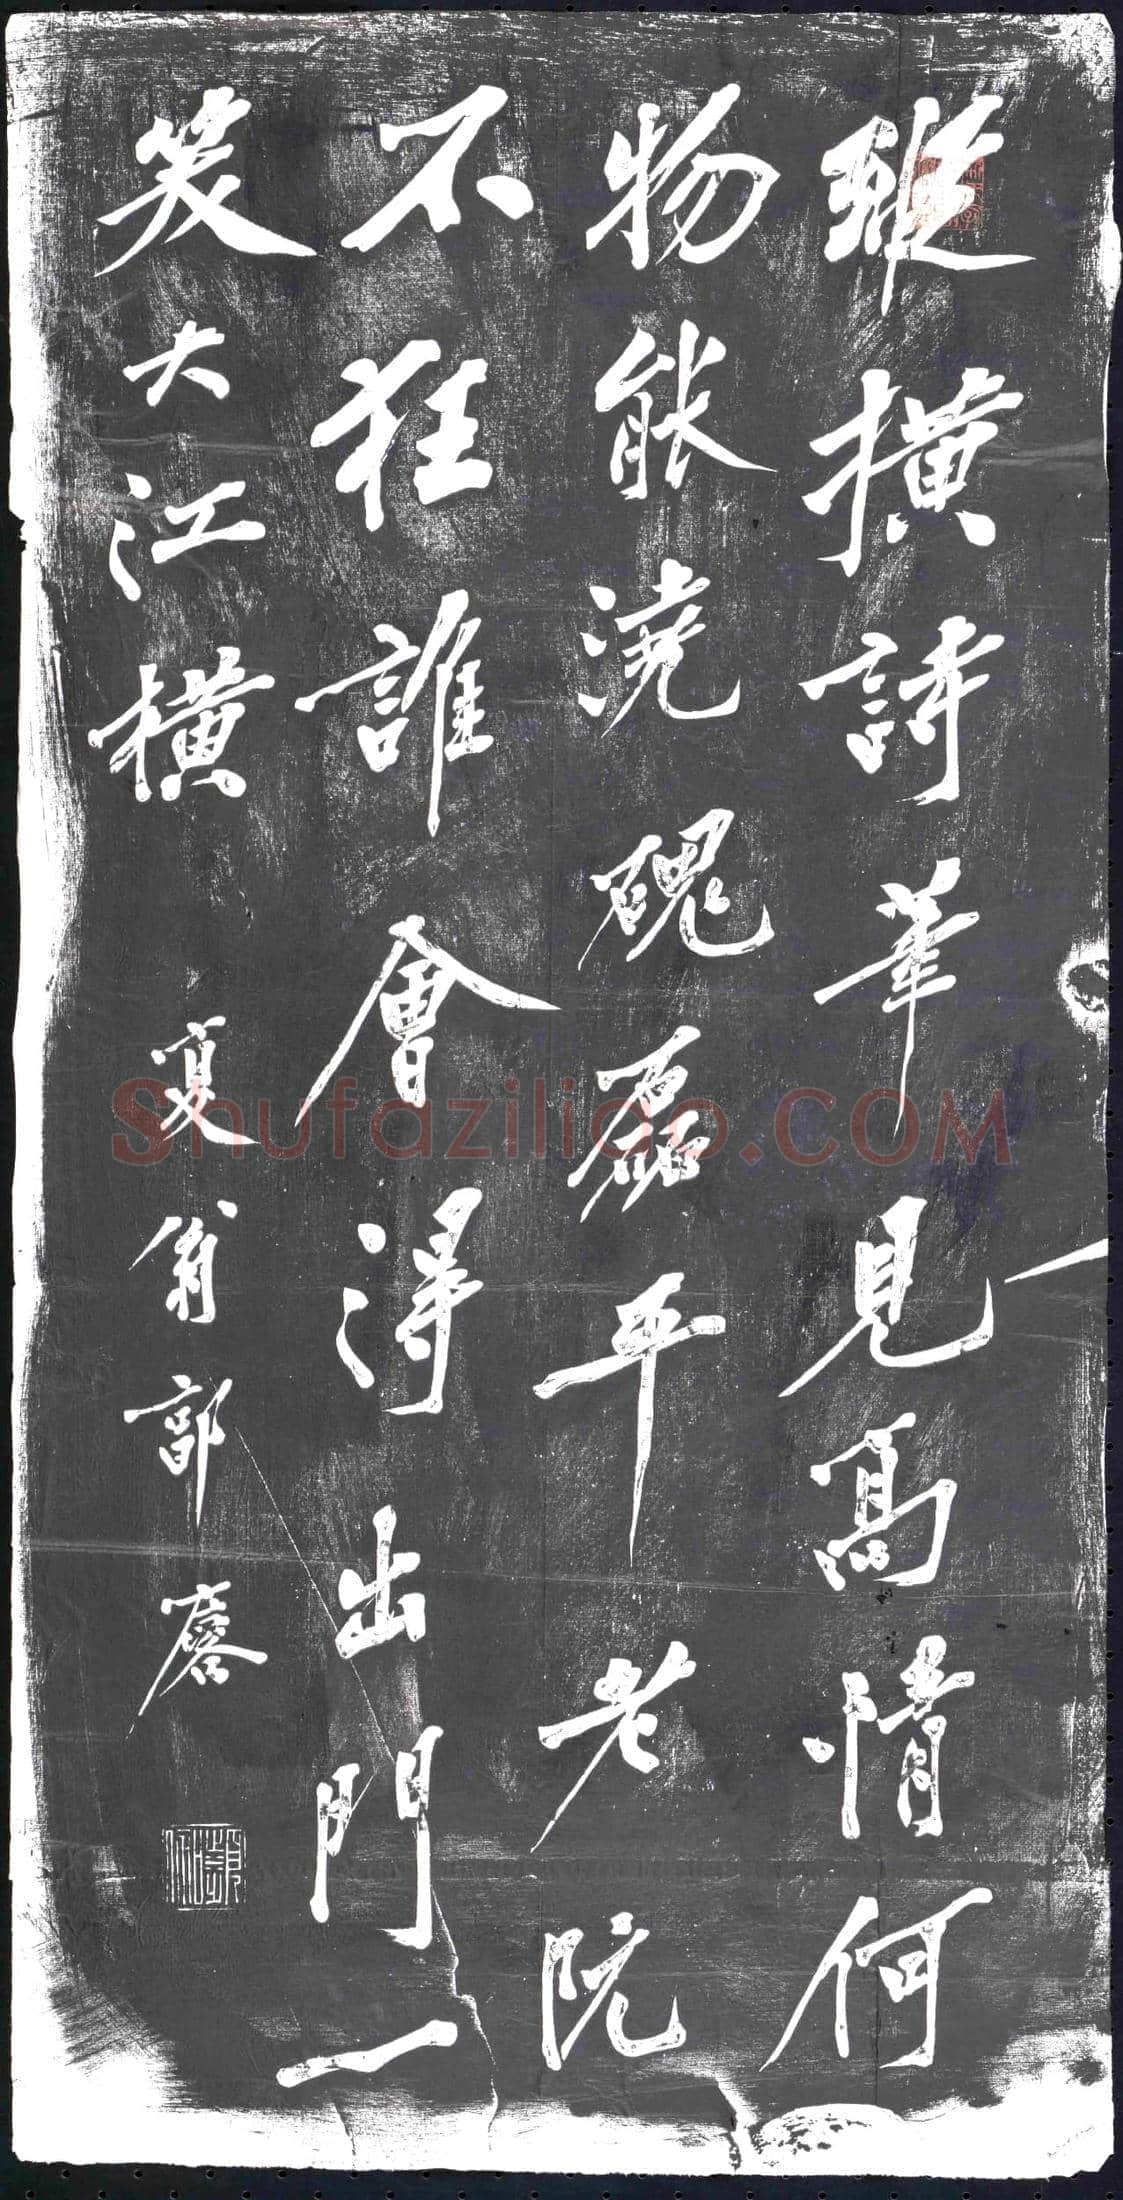 縱橫詩筆見高情何
物能澆磈磊平老阮
不狂誰會得出門一
笑大江橫
夏翁郭麐
Shufaziliao.COM